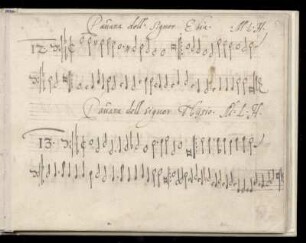 Pauana dell. Signor. M. L. H.
12.
Pauana dell. Signor. M. L. H.
13.